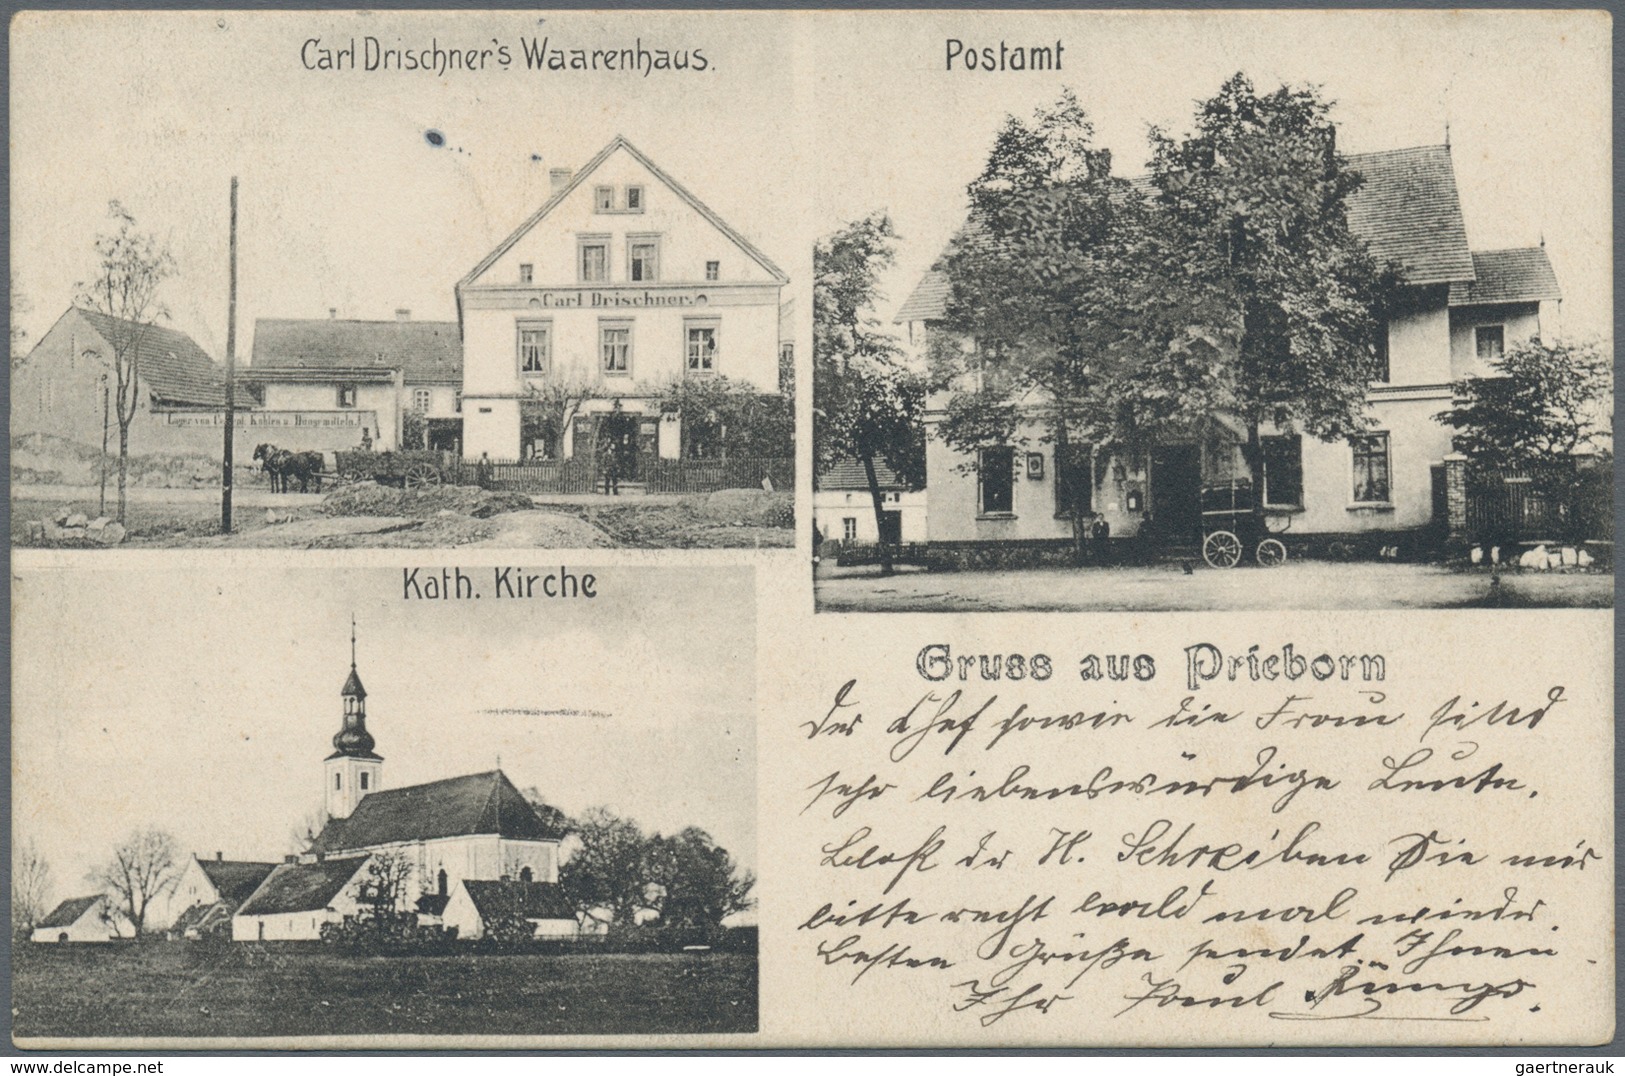 Carl Drischner's Waarenhaus.
Postamt
Carl Drischner.
Lager von Cement, Kohlen u. Düngemitteln.
Kath. Kirche
Gruss aus Prieborn
Der Chef sowie die Frau sind
sehr liebenswürdige Leute.
der H. Schreiben Sie mir
bitte recht bald mal wieder.
Besten Grüße sendet Ihnen
Ihr Paul
delcampe.net
gaertnerauk